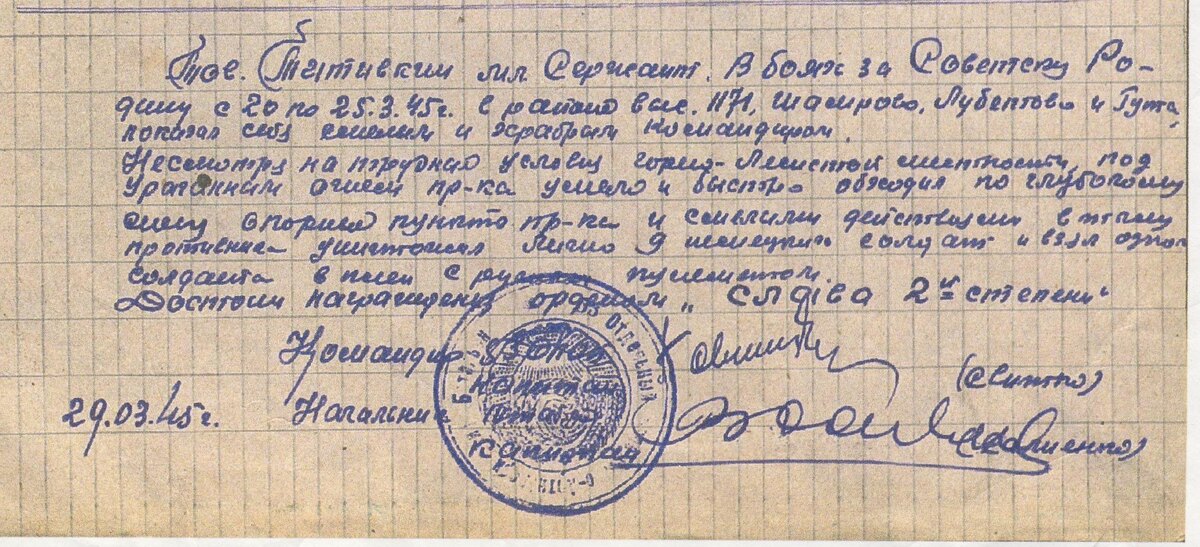 Тов. мл Сержант. В боях за Советску Ро-
дину с 20 по 25.3.45г. в районе выс. 1171, и Гута,
показал себя смелым и храбрым командиром.
Несмотря на трудния условия горно-Лесистой местности, под
ураганным огнем пр-ка умело и быстро обходил по глубокому
снегу опорние пункти пр-ка и смелими действиями в тылу
противника уничтожил Лично 9 немецких солдат и взял одного
солдата в плен с ручным пулеметом.
Достоин награждения орденом „Слава 2й степени"
Командир
капитан
29.03.45г. Начальник
капитан
Отдельный